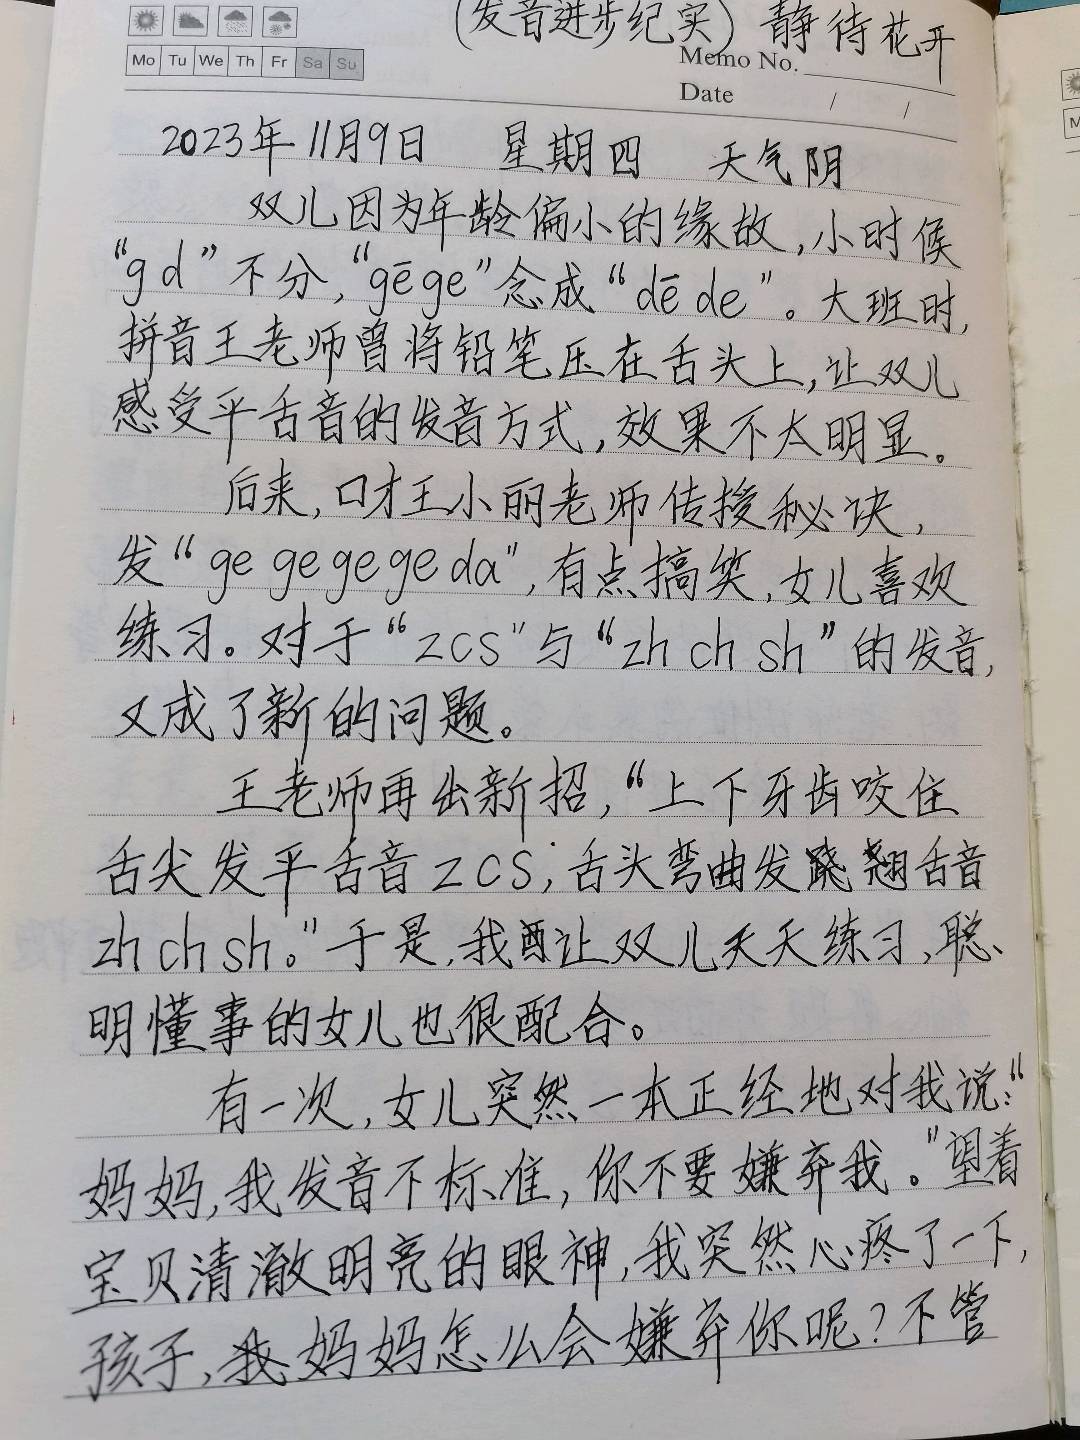 (发音进步纪实) 静待花开
Mo Tu We Th Fr Sa Su
Memo No.
Date / /
2023年11月9日 星期四 天气阴
双儿因为年龄偏小的缘故,小时候
“g d”不分,“gē ge”念成“dē de”。大班时,
拼音王老师曾将铅笔压在舌头上,让双儿
感受平舌音的发音方式,效果不太明显。
后来,口才王小丽老师传授秘诀,
发“ge ge ge ge da”,有点搞笑,女儿喜欢
练习。对于“z c s”与“zh ch sh”的发音,
又成了新的问题。
王老师再出新招,“上下牙齿咬住
舌尖发平舌音 z c s;舌头弯曲发翘舌音
zh ch sh。”于是,我让双儿天天练习,聪
明懂事的女儿也很配合。
有一次,女儿突然一本正经地对我说:“
妈妈,我发音不标准,你不要嫌弃我。”望着
宝贝清澈明亮的眼神,我突然心疼了一下,
孩子,妈妈怎么会嫌弃你呢?不管